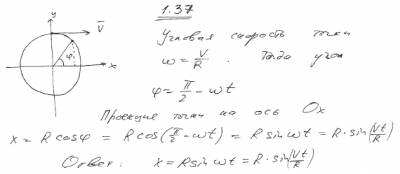 1.37
y
V
Угловая скорость точки
φ
x
ω = V/R. Тогда угол
φ = π/2 - ωt
Проекция точки на ось Ox
x = R cosφ = R cos(π/2 - ωt) = R sin ωt = R · sin(Vt/R)
Ответ: x = R sin ωt = R · sin(Vt/R)